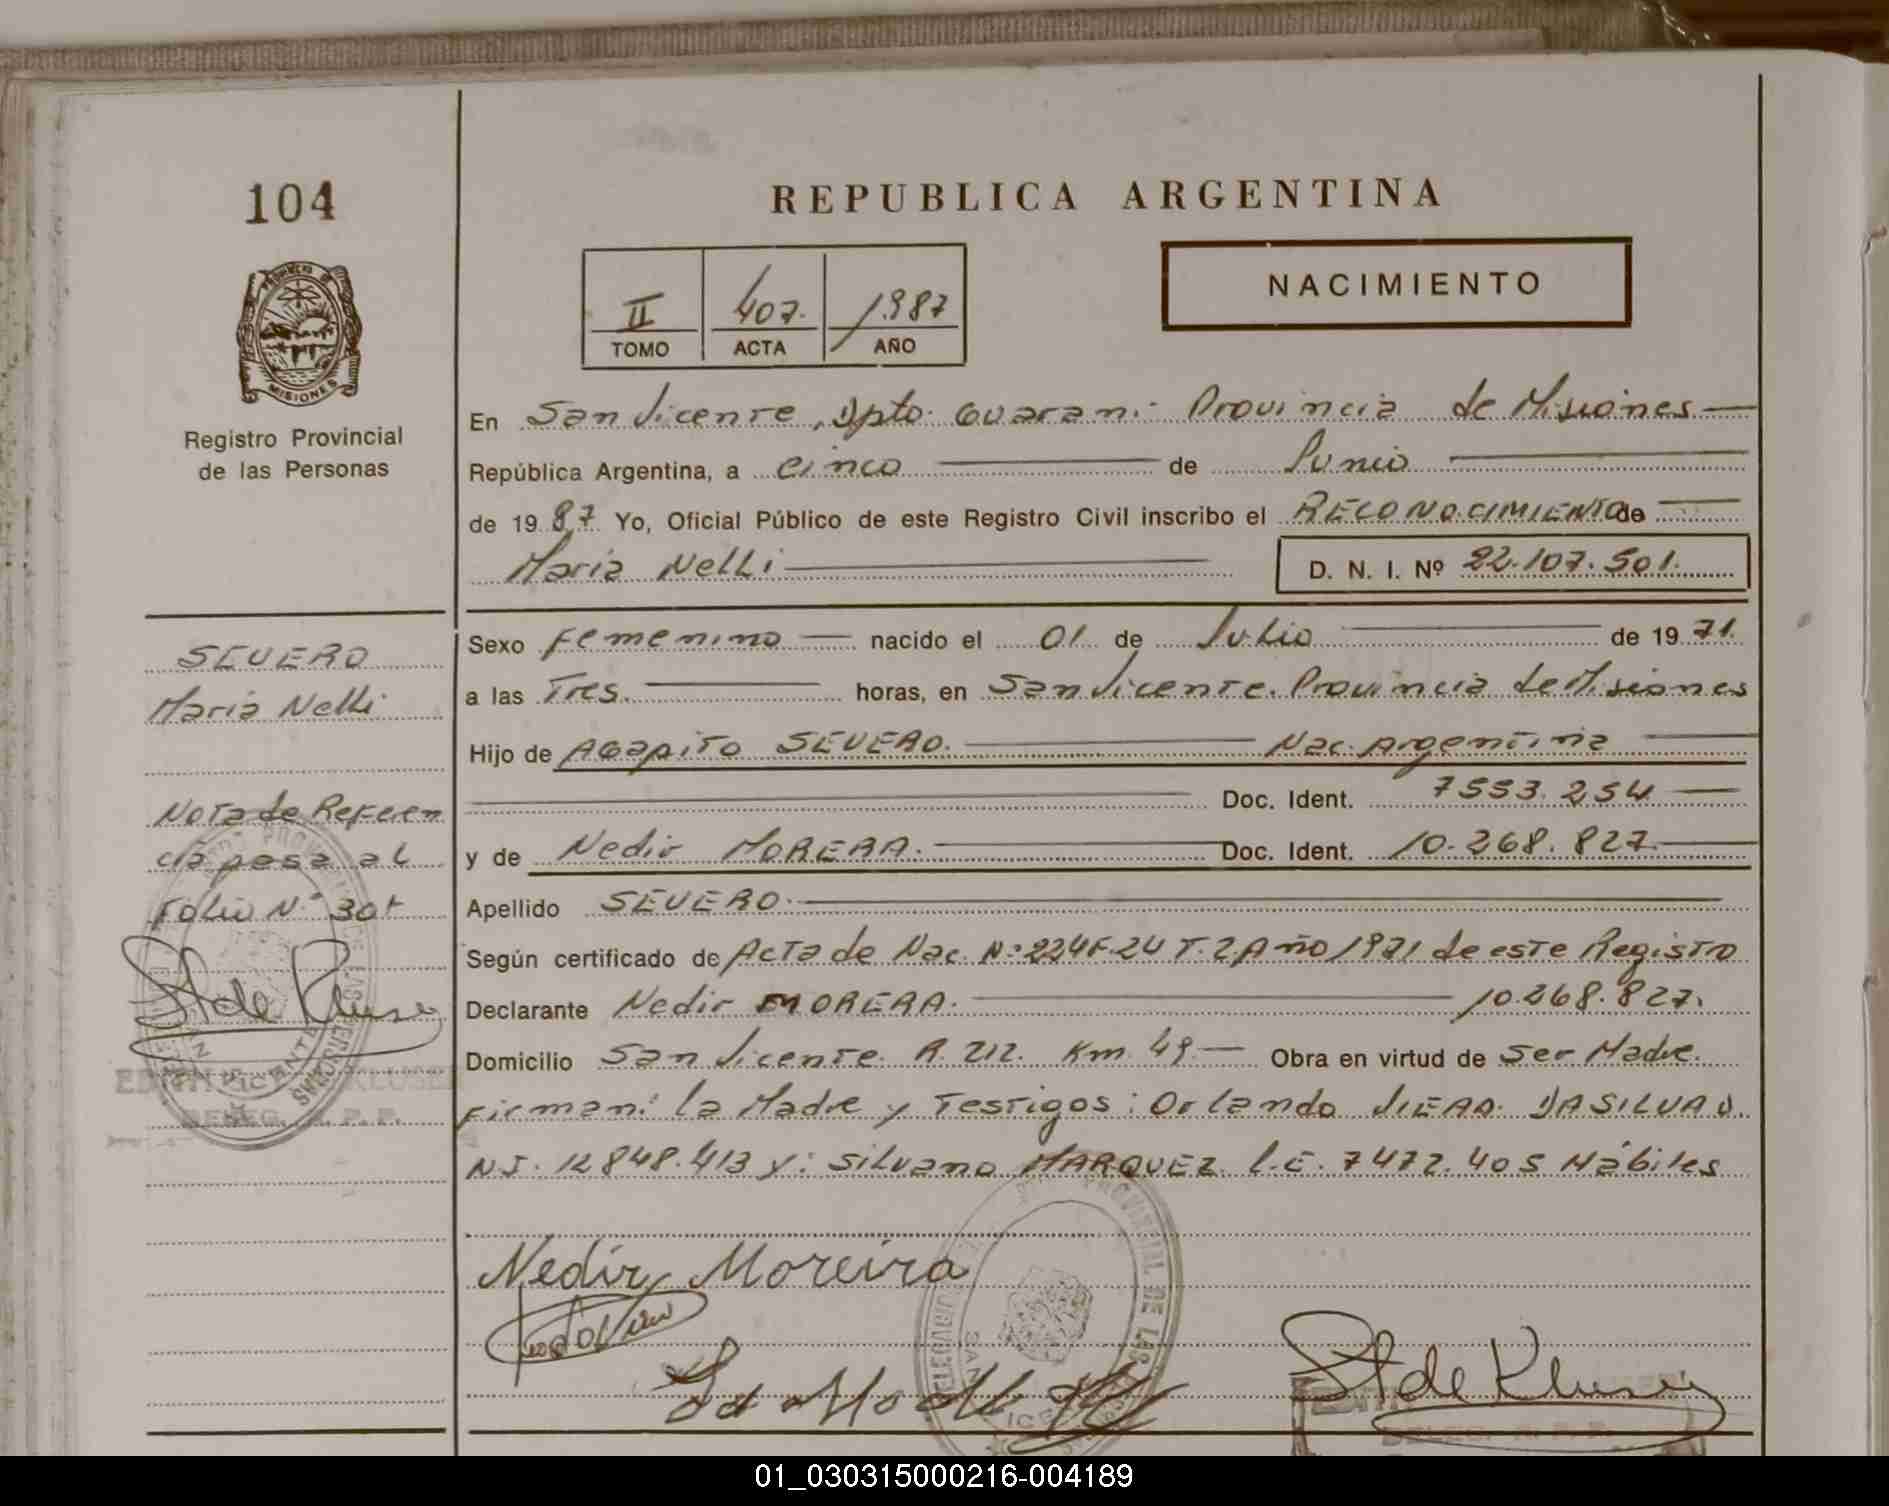 104
REPUBLICA ARGENTINA
NACIMIENTO
II 407. 1987
TOMO ACTA AÑO
PROVINCIA DE MISIONES
Registro Provincial
de las Personas
En San Vicente, Dpto. Guarani - Provincia de Misiones
República Argentina, a cinco de Junio
de 1987 Yo, Oficial Público de este Registro Civil inscribo el RECONOCIMIENTO de
Maria Nelli D. N. I. Nº 22.107.501.
Sexo Femenino nacido el 01 de Julio de 1971.
a las Tres. horas, en San Vicente. Provincia de Misiones
Hijo de Agapito SEVERO. Nac. argentina
Doc. Ident. 7553.254
y de Nedir MORERA. Doc. Ident. 10.268.827.
Apellido SEVERO.
Según certificado de Acta de Nac. Nº 224 F. 24 T. 2 Año 1971 de este Registro
Declarante Nedir MORERA. 10.268.827.
Domicilio San Vicente. R. 212. Km. 49. Obra en virtud de Ser Madre.
Firman: la Madre y Testigos: Orlando VIERA DASILVA D.
N.I. 12.848.413 y: Silvano MARQUEZ L.E. 7472.405 Hábiles
SEVERO
Maria Nelli
Nota de Referen
cia pasa al
Folio Nº 301
St de Kluse
Nedir Moreira
St de Kluse
01_030315000216-004189